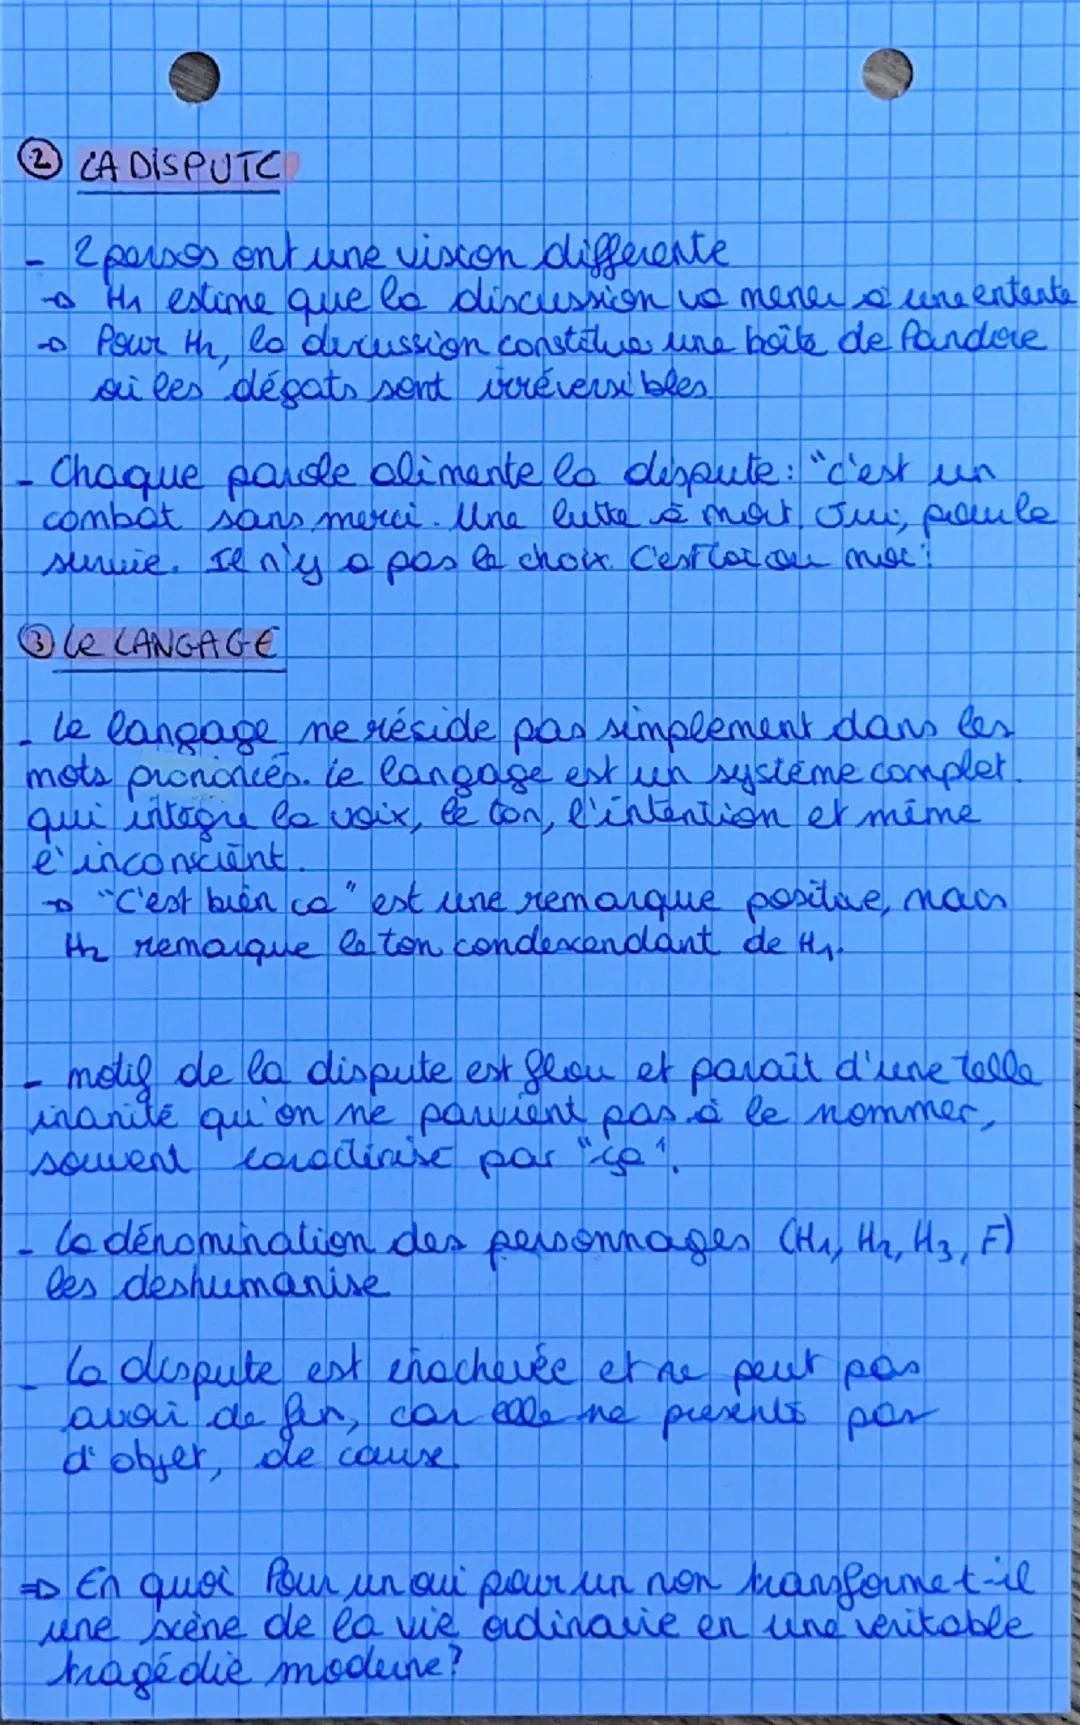 ② LA DISPUTE
- 2 persos ont une vision différente
→ H1 estime que la discussion va mener à une entente
→ Pour H2, la discussion constitue une boîte de Pandore
où les dégats sont irréversibles
- Chaque parole alimente la dispute : "c'est un
combat sans merci. Une lutte à mort. Oui, pour la
survie. Il n'y a pas le choix. C'est toi ou moi"
③ Le LANGAGE
- Le langage ne réside pas simplement dans les
mots prononcés. Le langage est un système complet.
qui intègre la voix, le ton, l'intention et même
l'inconscient.
→ "C'est bien ça" est une remarque positive, mais
H2 remarque le ton condescendant de H1.
- motif de la dispute est flou et paraît d'une telle
inanité qu'on ne parvient pas à le nommer,
souvent caractérisé par "ça".
- La dénomination des personnages (H1, H2, H3, F)
les deshumanise
- La dispute est inachevée et ne peut pas
avoir de fin, car elle ne présente pas
d'objet, de cause.
⇒ En quoi Pour un oui pour un non transforme t-il
une scène de la vie ordinaire en une véritable
tragédie moderne?